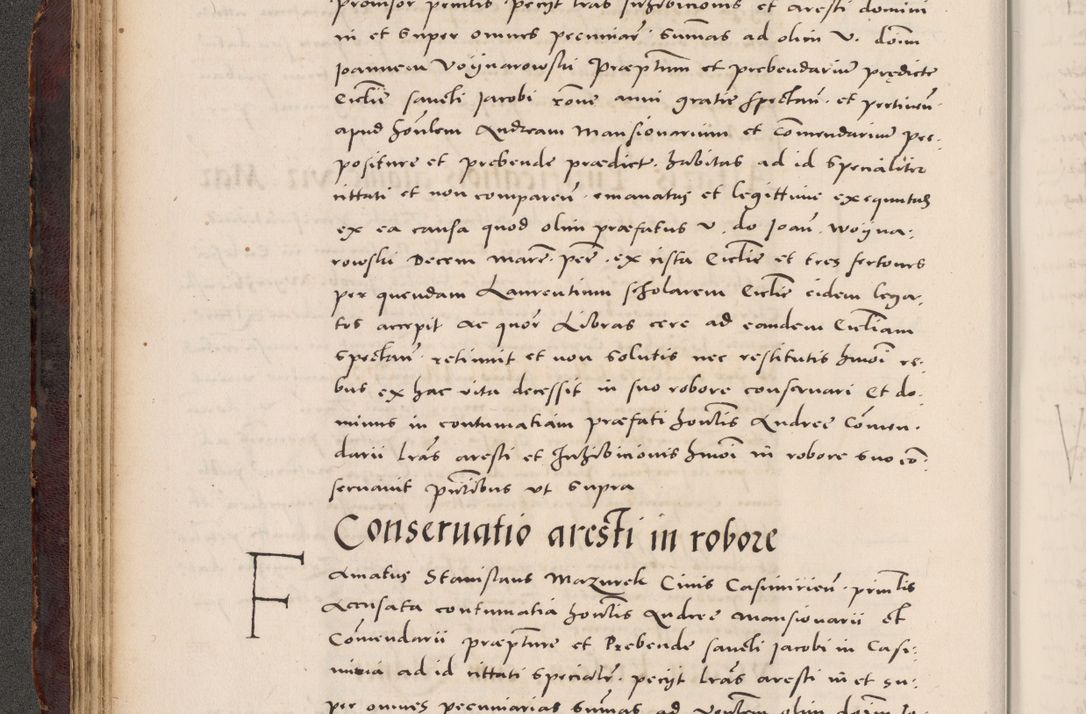 provisor petiit lras Inhibicionis et aresti domini
in et super omnes pecuniar. summas ad olim V. dom̄
Joannem Voynarowski Præp̄tum et prebendariū prędicte
Ecclīe sancti Jacobi rōne anni gratie spectan̄. et pertinen̄.
apud hon̄lem Andream Mansionarium et Com̄endariū pre:
positure et prebende prædict. habitas ad id specialiter
cittati et non comparen̄. emanatas et legittime exequutas
ex ea causa quod olim præfatus V. do Joan̄. Woyna:
rowski Decem marc̄. pec̄. ex cista Ecclīe et tres fertones
per quendam Laurentium scholarem Ecclīe eidem lega:
tos accepit ac quor̄ Libras cere ad eandem Eccliam
spectan̄. retinuit et non solutis nec restitutis hmōi re:
bus ex hac vita decessit in suo robore conseruari Et do:
minus in contumatiam præfati hon̄lis Andree Com̄en:
darii lrās aresti et Inhibicionis hmōi in robore suo cō:
seruauit pn̄tibus vt supra
Conseruatio aresti in robore
F
Amatus Stanislaus Mazurek Ciuis Casimirien̄. prin̄lis
Accusata contumatia hon̄lis Andree Mansionarii et
Com̄endarii præp̄ture et Prebende sancti Jacobi in Casi:
miria ad id cittati specialr̄. petiit lrās aresti in et su:
per omnes pecuniarias sum̄as ad olim dom̄ Jo: